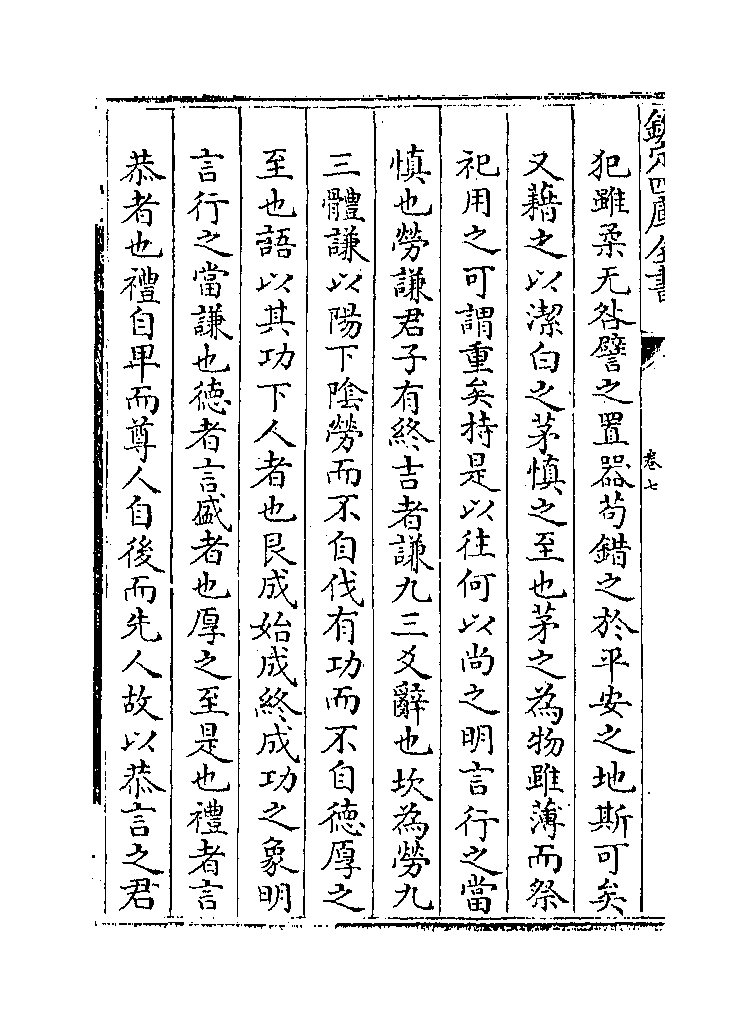 欽定四庫全書
卷七
犯雖柔无咎譬之置器苟錯之於平安之地斯可矣
又藉之以潔白之茅慎之至也茅之為物雖薄而祭
祀用之可謂重矣持是以往何以尚之明言行之當
慎也勞謙君子有終吉者謙九三爻辭也坎為勞九
三體謙以陽下陰勞而不自伐有功而不自徳厚之
至也語以其功下人者也艮成始成終成功之象明
言行之當謙也徳者言盛者也厚之至是也禮者言
恭者也禮自卑而尊人自後而先人故以恭言之君